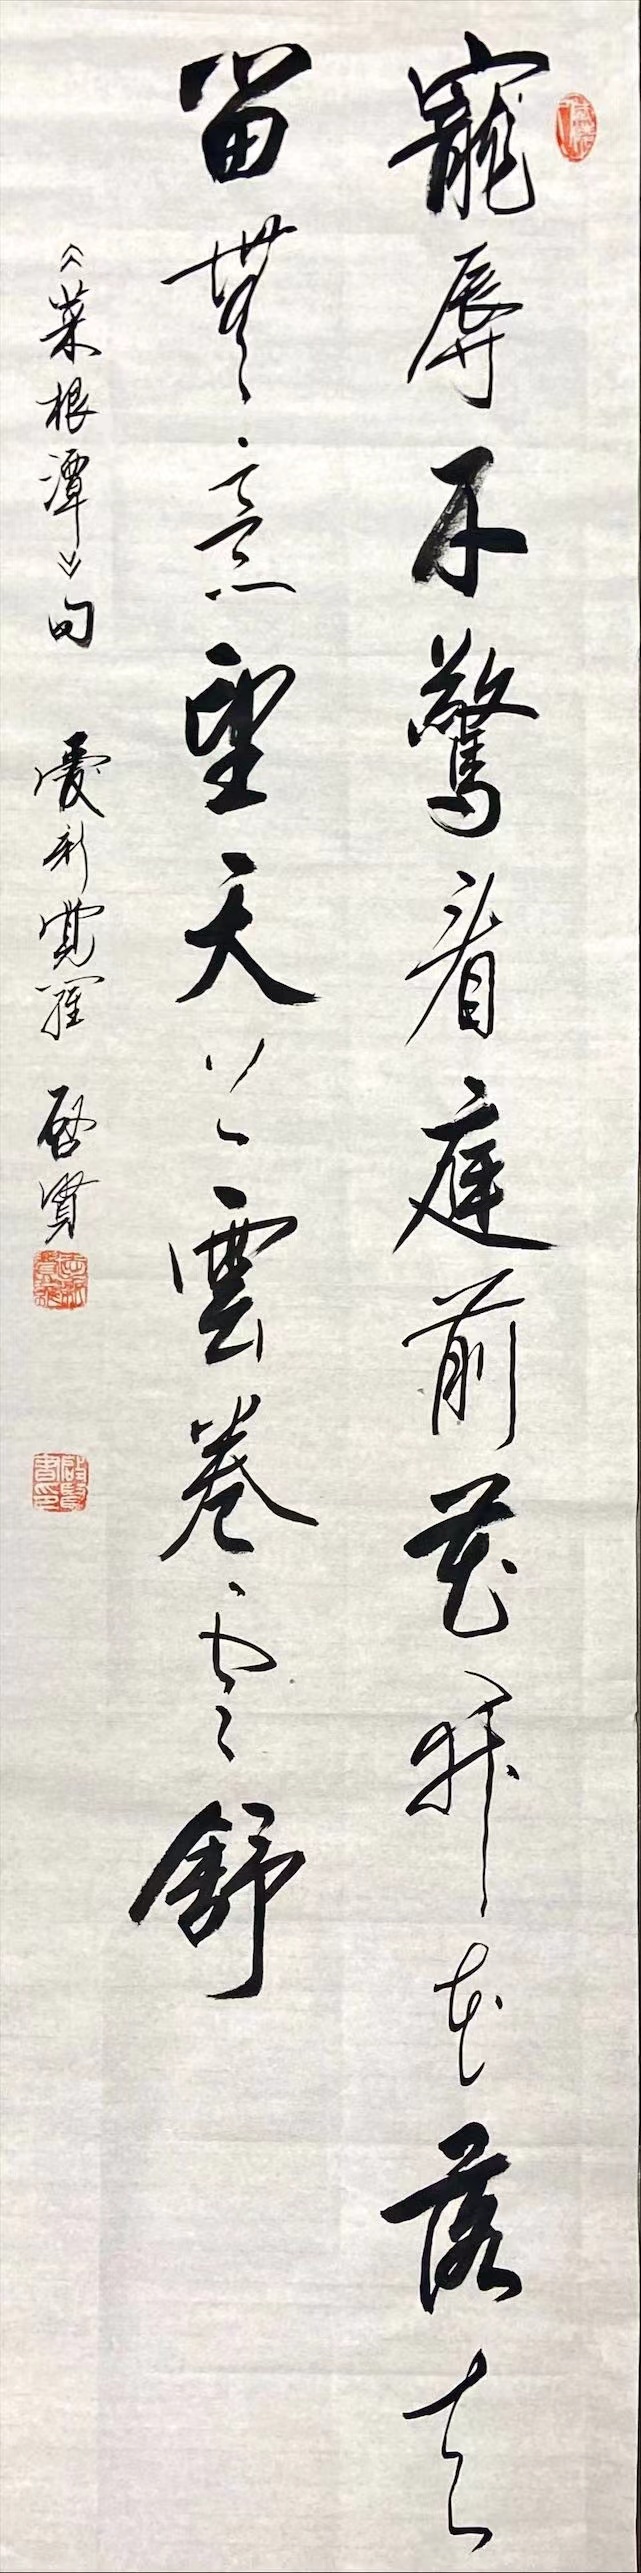 寵辱不驚看庭前花开花落去
留無意望天上雲卷雲舒
《菜根潭》句 愛新覺羅 啓賢